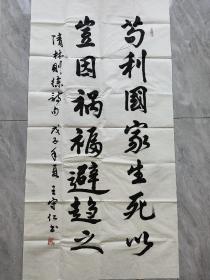 苟利國家生死以
豈因祸福避趋之
清林则徐诗句 戊子年夏 王守仁书